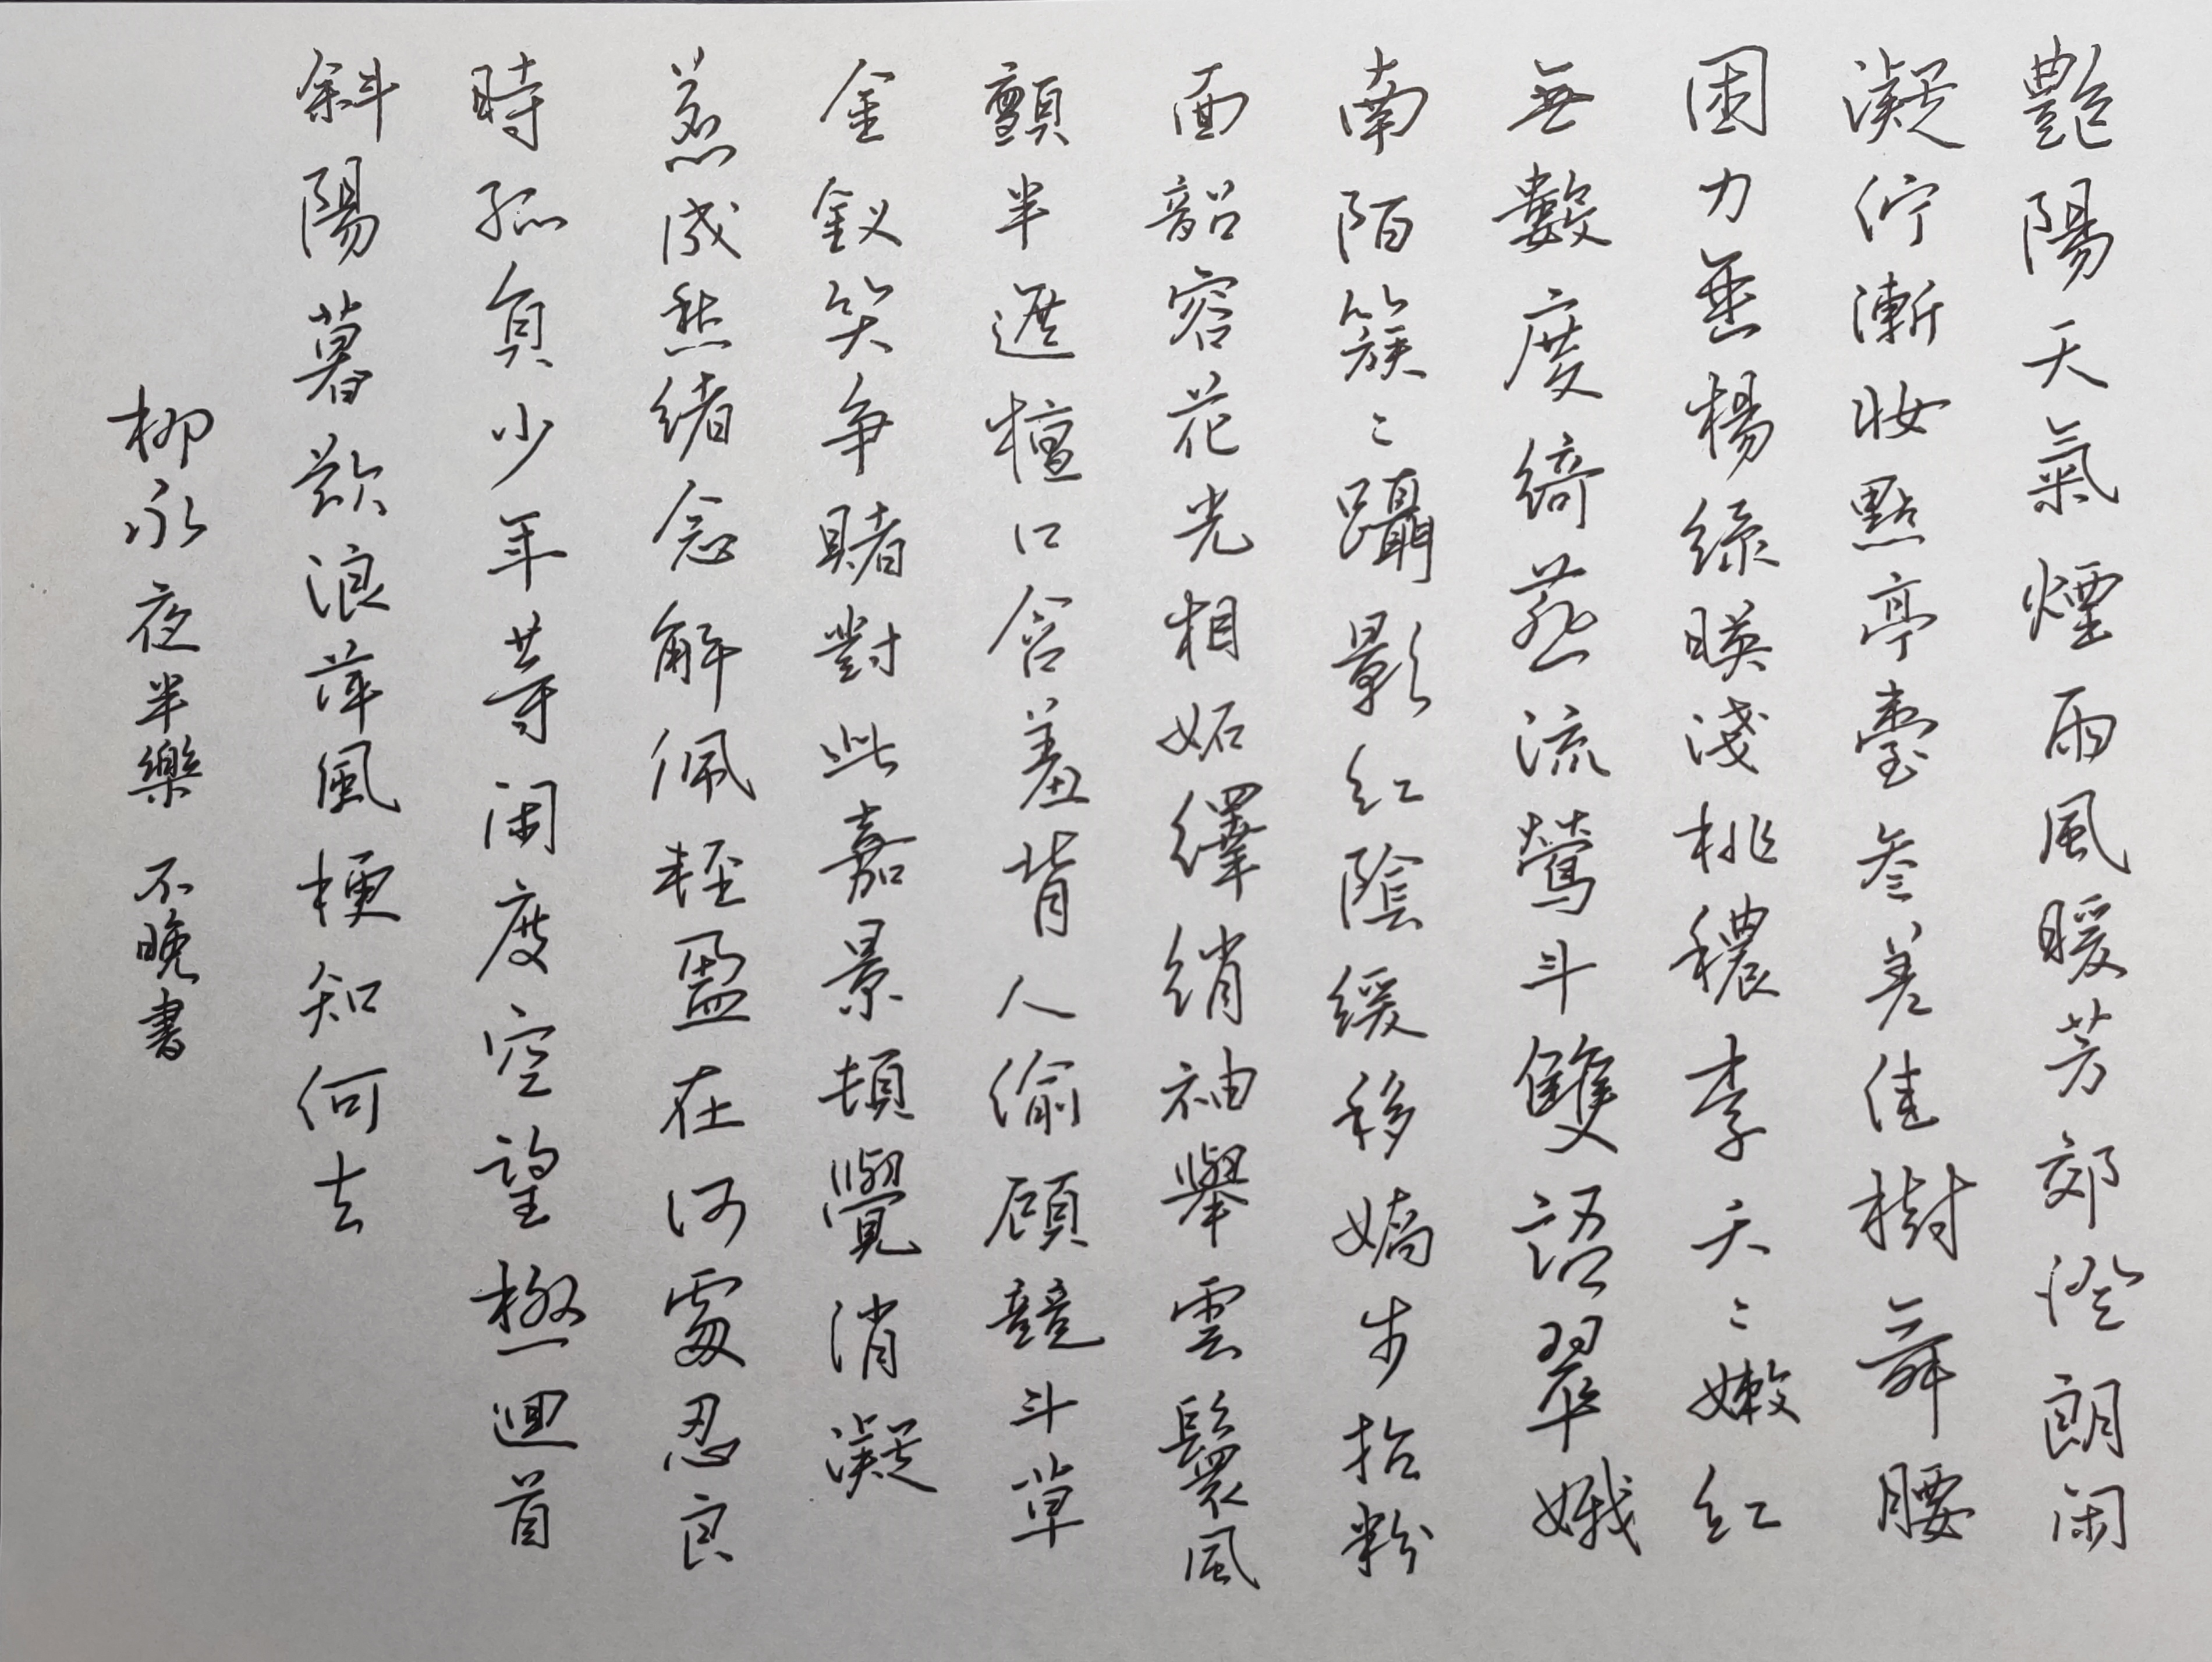 艷陽天氣煙雨風暖芳郊澄朗閑
凝佇漸妝點亭臺參差佳樹舞腰
困力垂楊綠暎淺桃穠李夭〻嫩紅
無數度綺燕流鶯斗雙語翠娥
南陌簇〻躡影紅陰緩移嬌步抬粉
面韶容花光相妬繹綃袖舉雲鬟風
顫半遮檀口含羞背人偷顧競斗草
金釵笑爭賭對此嘉景頓覺消凝
惹成愁緒念解佩輕盈在何處忍良
時孤負少年等閑度空望極迴首
斜陽暮歎浪萍風梗知何去
柳永夜半樂 不晚書